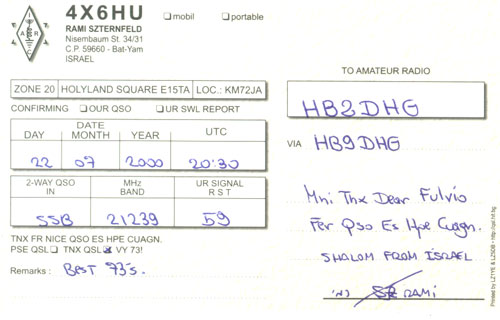 4X6HU
RAMI SZTERNFELD
Nisembaum St. 34/31
C.P. 59660 - Bat-Yam
ISRAEL
mobil portable
I A R C
ZONE 20 HOLYLAND SQUARE E15TA LOC.: KM72JA
CONFIRMING OUR QSO UR SWL REPORT
DATE UTC
DAY MONTH YEAR
22 07 2000 20:30
2-WAY QSO IN MHz BAND UR SIGNAL R S T
SSB 21239 59
TNX FR NICE QSO ES HPE CUAGN.
PSE QSL TNX QSL VY 73!
Remarks : Best 73's.
TO AMATEUR RADIO
HB2DHG
VIA HB9DHG
Mni Thx Dear Fulvio
Fer Qso Es Hpe Cuagn.
SHALOM FROM ISRAEL
רמי RAMI